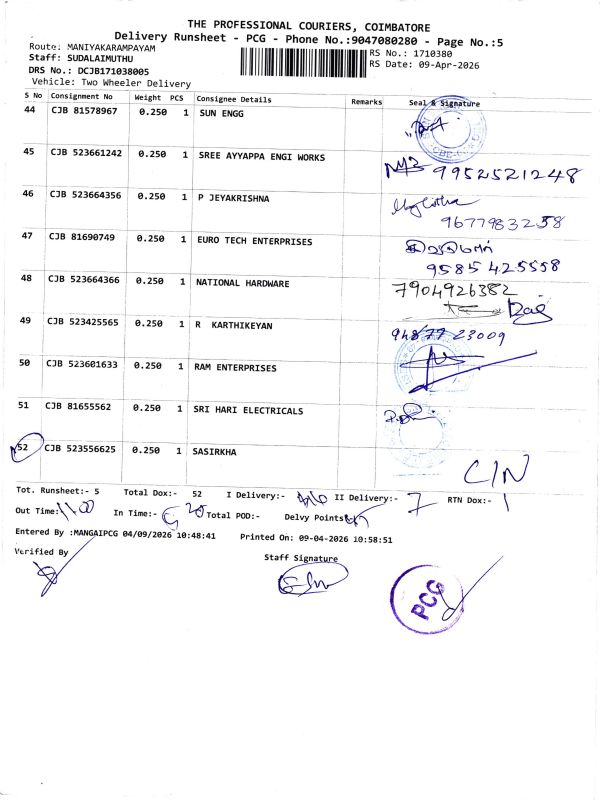 THE PROFESSIONAL COURIERS, COIMBATORE
Delivery Runsheet - PCG - Phone No.:9047080280 - Page No.:5
Route: MANIYAKARAMPAYAM
RS No.: 1710380
Staff: SUDALAIMUTHU
RS Date: 09-Apr-2026
DRS No.: DCJB171038005
Vehicle: Two Wheeler Delivery
S No Consignment No Weight PCS Consignee Details Remarks Seal & Signature
44 CJB 81578967 0.250 1 SUN ENGG
45 CJB 523661242 0.250 1 SREE AYYAPPA ENGI WORKS
9952521248
46 CJB 523664356 0.250 1 P JEYAKRISHNA
9677983258
47 CJB 81690749 0.250 1 EURO TECH ENTERPRISES
9585425558
48 CJB 523664366 0.250 1 NATIONAL HARDWARE 7904926382
49 CJB 523425565 0.250 1 R KARTHIKEYAN
23009
50 CJB 523601633 0.250 1 RAM ENTERPRISES
51 CJB 81655562 0.250 1 SRI HARI ELECTRICALS
52 CJB 523556625 0.250 1 SASIRKHA
C/N
Tot. Runsheet:- 5 Total Dox:- 52 I Delivery:- II Delivery:- 7 RTN Dox:- 1
Out Time: 1100 In Time:- Total POD:- Delvy Points 45
Entered By :MANGAIPCG 04/09/2026 10:48:41 Printed On: 09-04-2026 10:58:51
Verified By
Staff Signature
PCG